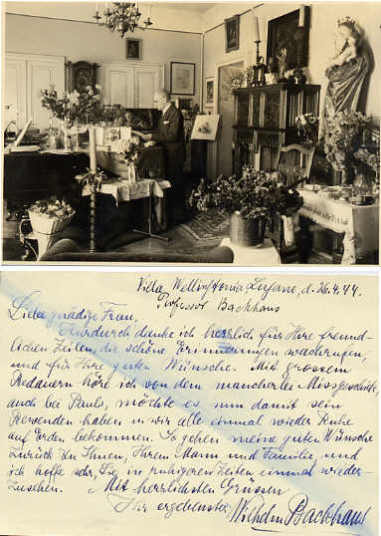 Villa Wellingtonia Lugano, d. 26.4.44.
Professor Backhaus
Liebe gnädige Frau,
Hierdurch danke ich herzlich für Ihre freund-
lichen Zeilen, die schöne Erinnerungen wachrufen,
und für Ihre guten Wünsche. Mit grossem
Bedauern höre ich von dem mancherlei Missgeschick,
auch bei Pauls, möchte es nun damit sein
Bewenden haben u. wir alle einmal wieder Ruhe
auf Erden bekommen. So gehen meine guten Wünsche
zurück zu Ihnen, Ihrem Mann und Familie, und
ich hoffe sehr, Sie in ruhigeren Zeiten einmal wieder-
zusehen. Mit herzlichsten Grüssen
Ihr ergebenster Wilhelm Backhaus